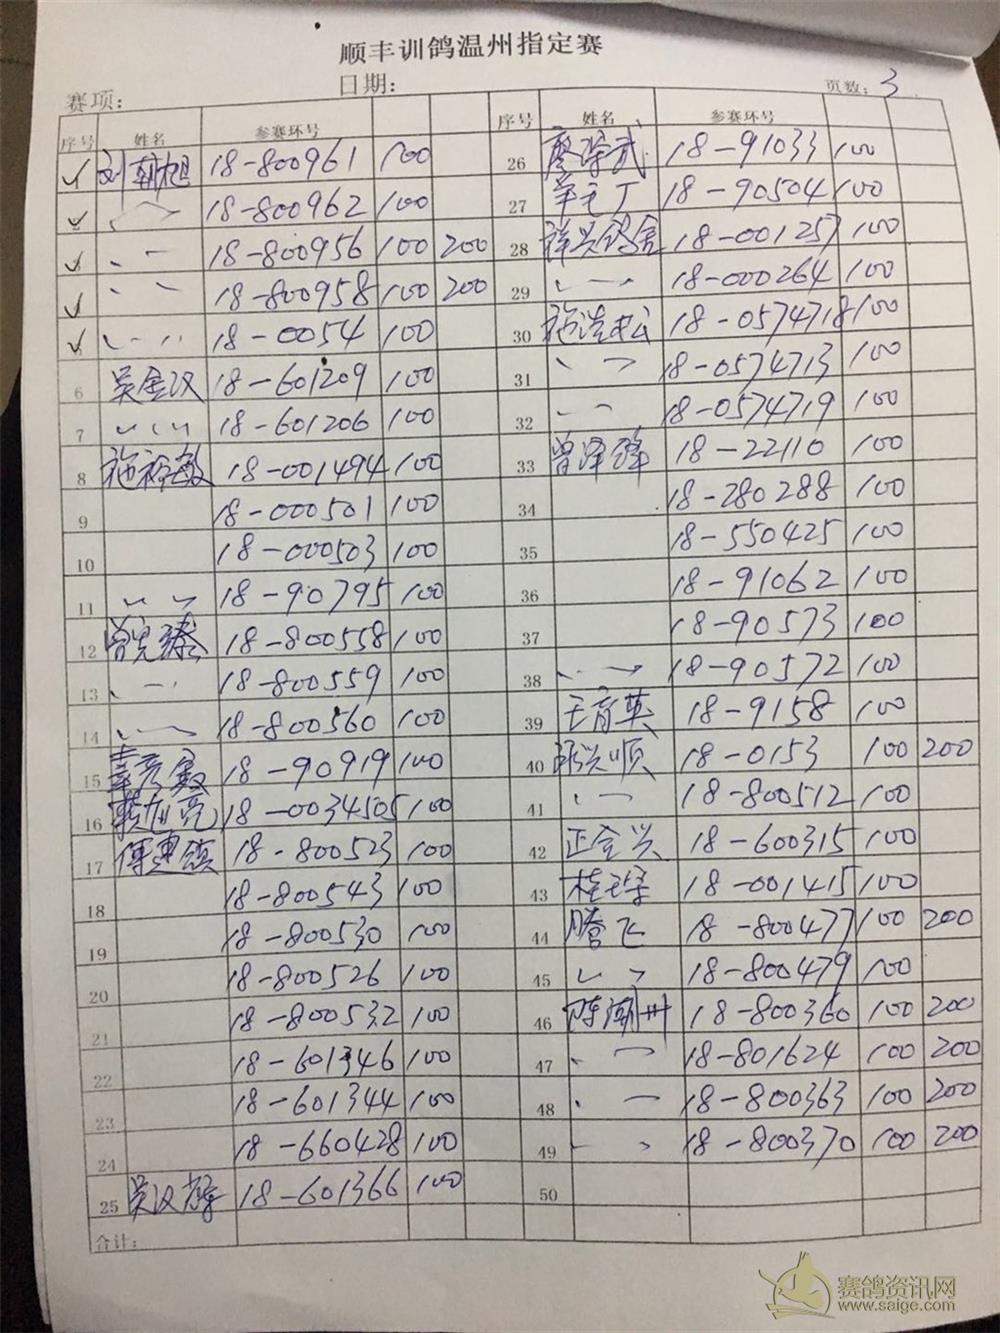 顺丰训鸽温州指定赛
赛项： 日期： 页数：3
序号 姓名 参赛环号
刘朝旭 18-800961 100
18-800962 100
18-800956 100 200
18-800958 100 200
18-0054 100
6 吴金汉 18-601209 100
7 18-601206 100
8 18-001494 100
9 18-000501 100
10 18-000503 100
11 18-90795 100
12 18-800558 100
13 18-800559 100
14 18-800560 100
15 18-90919 100
16 18-0034505 100
17 傅惠镇 18-800523 100
18 18-800543 100
19 18-800530 100
20 18-800526 100
21 18-800532 100
22 18-601346 100
23 18-601344 100
24 18-660428 100
25 吴汉 18-601366 100
合计：
序号 姓名 参赛环号
26 18-91033 100
27 18-90504 100
28 祥兴鸽舍 18-001257 100
29 18-000264 100
30 18-0574718 100
31 18-0574713 100
32 18-0574719 100
33 曾泽锋 18-22110 100
34 18-280288 100
35 18-550425 100
36 18-91062 100
37 18-90573 100
38 18-90572 100
39 王育英 18-9158 100
40 18-0153 100 200
41 18-800512 100
42 正金兴 18-600315 100
43 18-001415 100
44 腾飞 18-800477 100 200
45 18-800479 100
46 陈潮州 18-800360 100 200
47 18-801624 100 200
48 18-800363 100 200
49 18-800370 100 200
50
赛鸽资讯网
www.saige.com